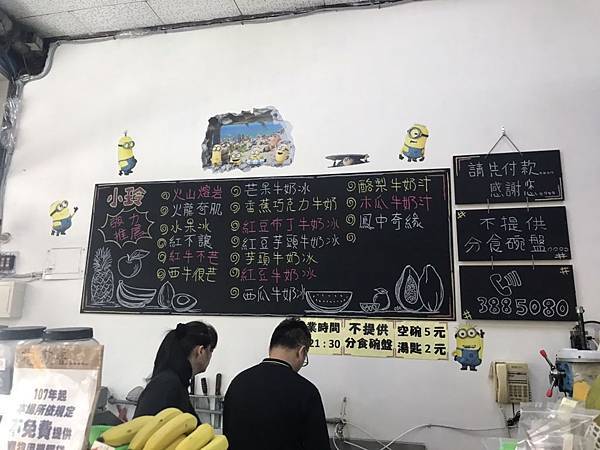 小玲
強力
推薦
火山熔岩
火龍奇肌
水果冰
紅不讓
紅牛不芒
西牛很芒
芒果牛奶冰
香蕉巧克力牛奶
紅豆布丁牛奶冰
紅豆芋頭牛奶冰
芋頭牛奶冰
紅豆牛奶冰
西瓜牛奶冰
酪梨牛奶汁
木瓜牛奶汁
鳳中奇緣
請先付款....
感謝您....
不提供
分食碗盤....
3885080
業時間
21:30
不提供
分食碗盤
空碗5元
湯匙2元
107年起
本場所依規定
不免費提供